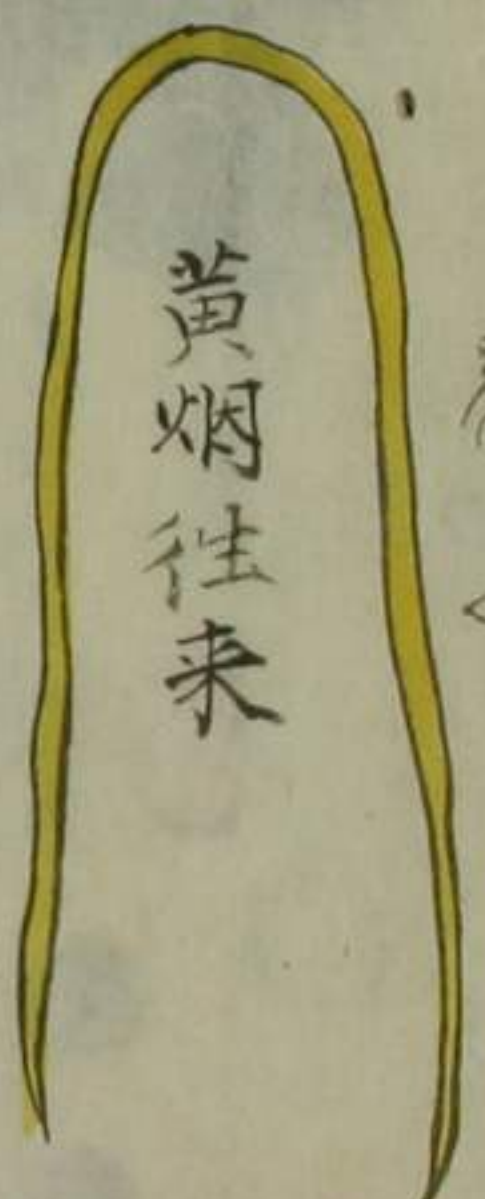 黄烟往来